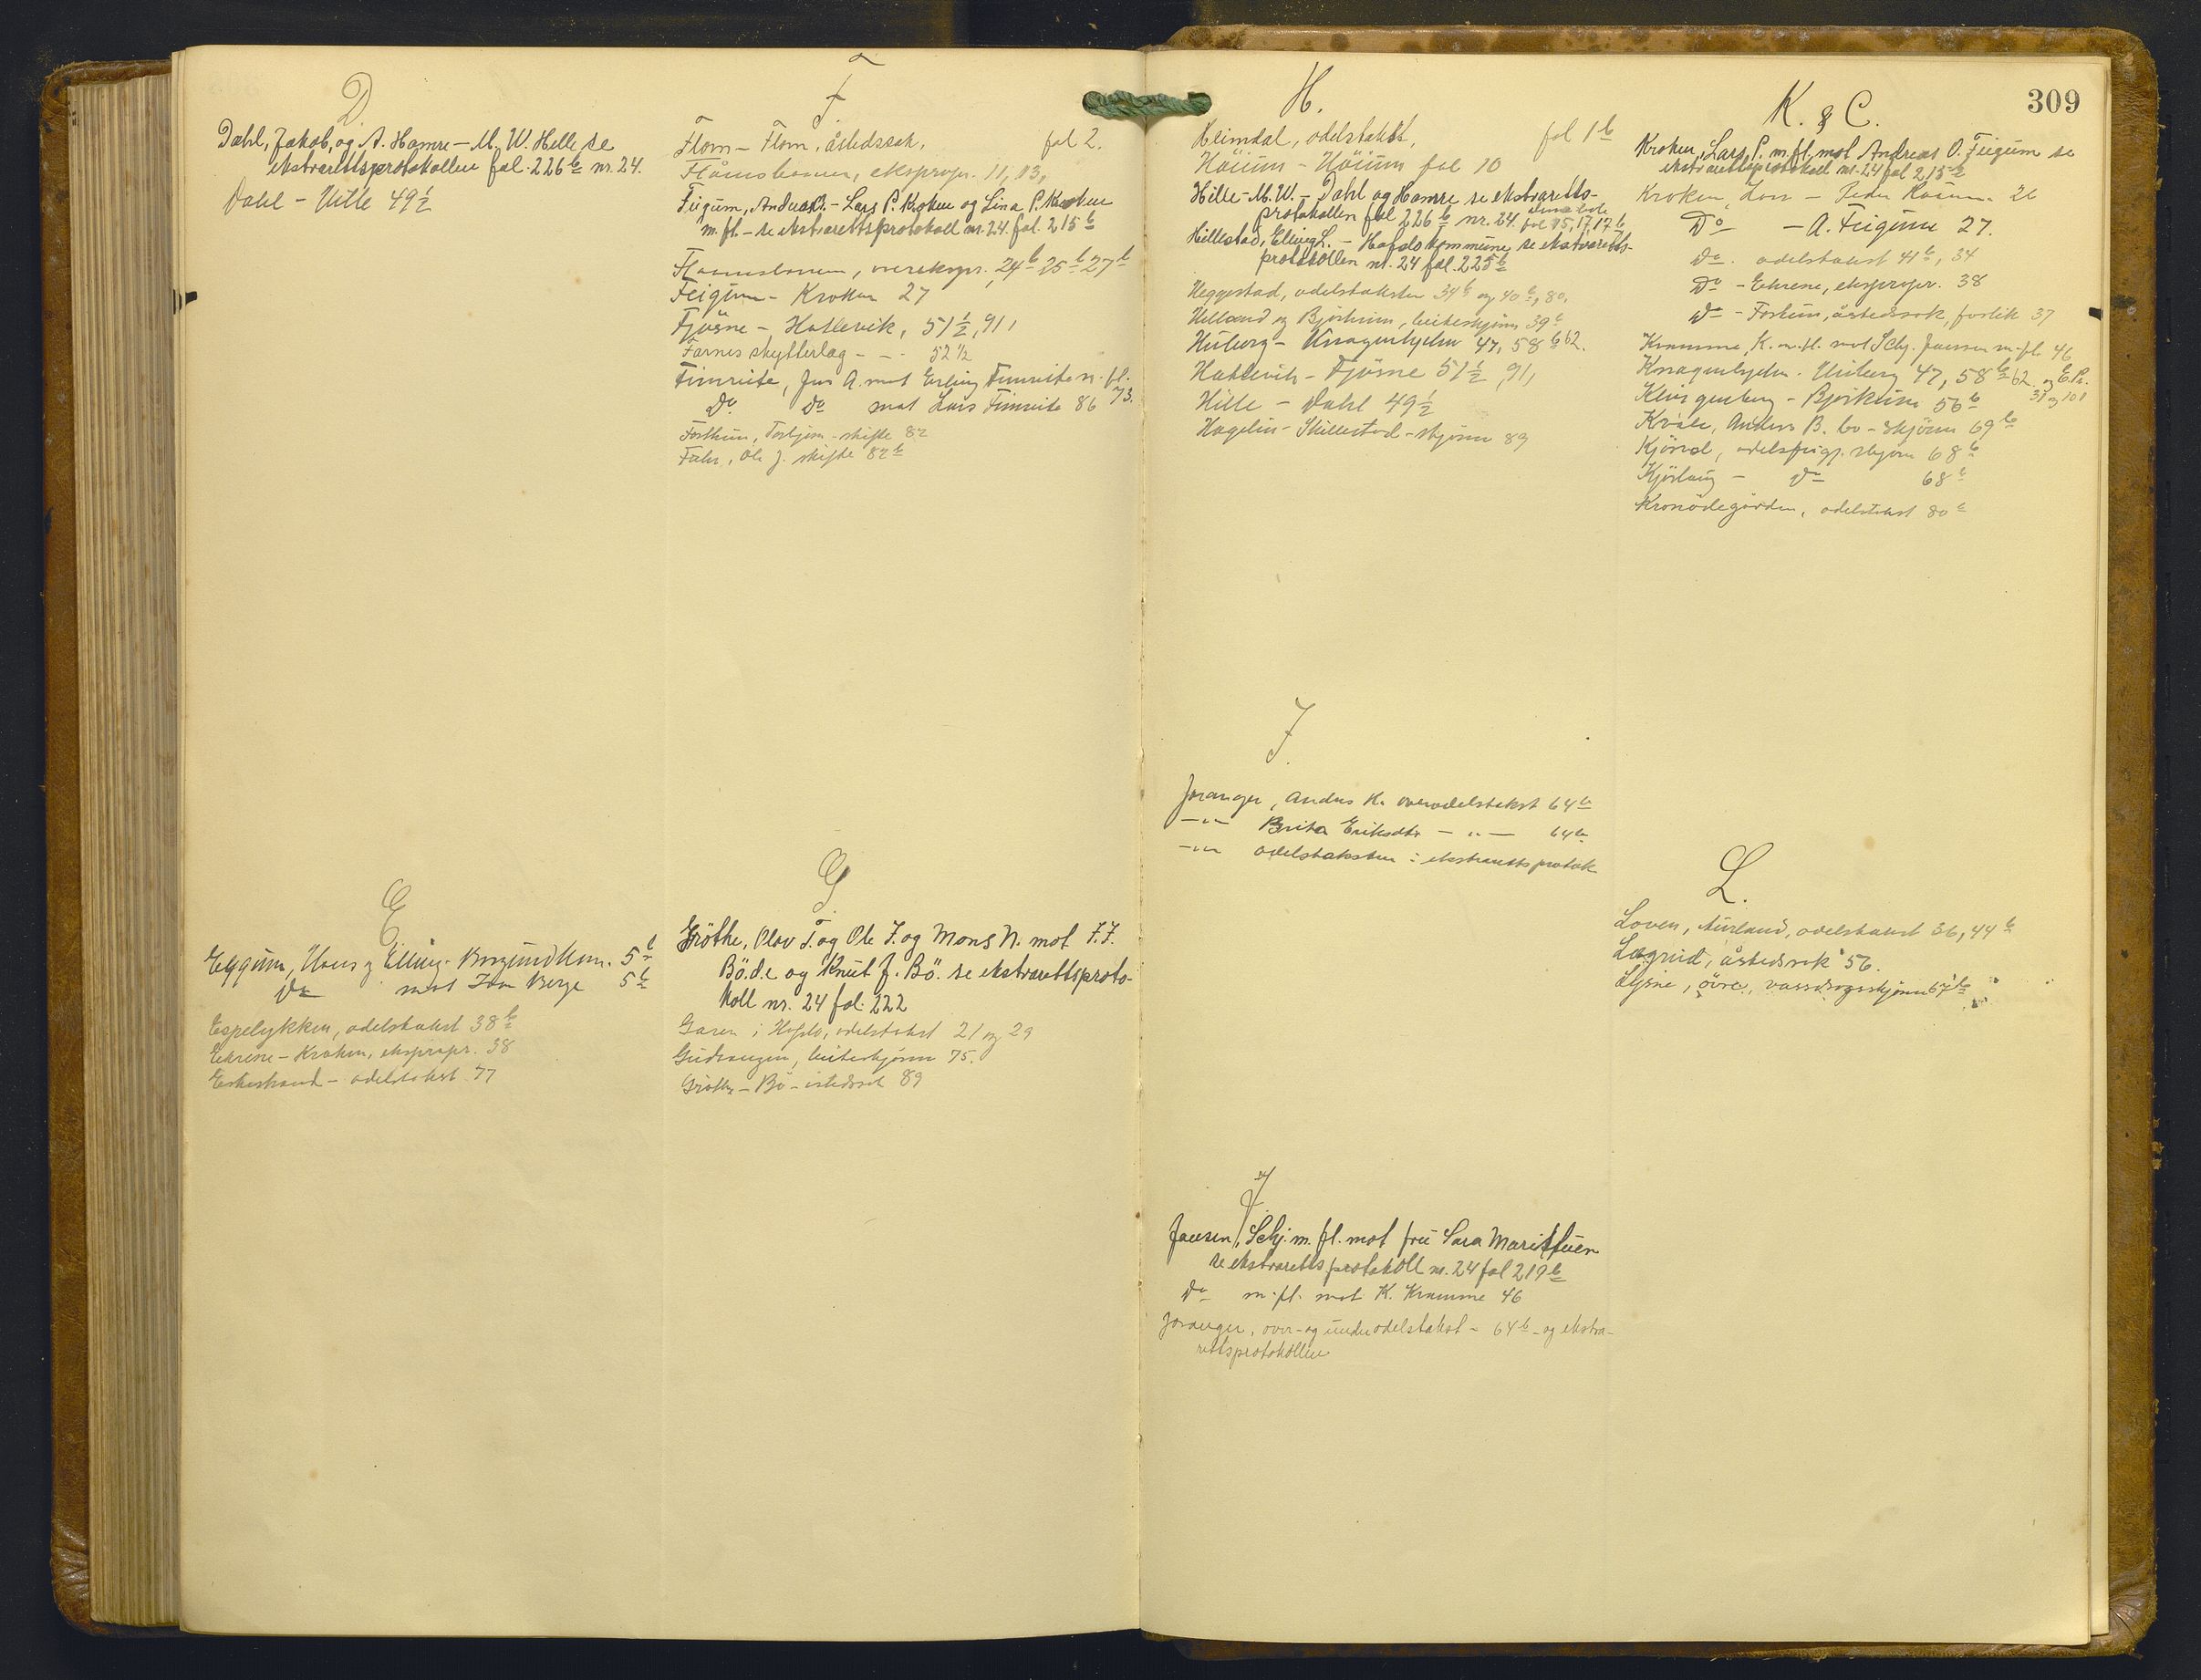 D.
Dahl, Jakob, og A. Hamre – M. W. Helle se
ekstrarettsprotokollen fol. 226 b nr. 24.
Dahl – Hille 49½
E
Eggum, Hans og Elling – Borgund kom. 5 b
Do mot Iver Berge 5 b
Espelykken, odelstakst 38 b
Ekrene – Kroken, ekspropr. 38
odelstakst 77
F.
Flom – Flom, åstedssak, fol 2.
Flåmsbanen, ekspropr. 11, 13,
Feigum, Andreas O. – Lars P. Kroken og Lina P. Kroken
m. fl. – se ekstrarettsprotokoll nr. 24. fol. 215 b
Flaamsbanen, overekspr. 24 b 25 b 27 b
Feigum – Kroken 27
Fjøsne – Hatlevik, 51½, 91,
Farnes skytterlag – – 52½
Fimreite, Jens A. mot Erling Fimreite m. fl. 73.
Do Do mot Lars Fimreite 86
Forthun, Torbjørn – skifte 82
Ole J. skifte 82 b
G.
Grøthe, Olav T. og Ole I. og Mons N. mot I. I.
Bø. d. e. og Knut J. Bø. se ekstrarettsproto-
koll nr. 24 fol. 222
Garen i Hafslo, odelstakst 21 og 29
Gudvangen, beiteskjønn 75.
Grøthe – Bø – åstedssak 89
309
H.
Heimdal, odelstakst, fol 1 b
Høium – Høium fol 10
Hille – M. W. – Dahl og Hamre se ekstraretts-
protokollen fol 226 b nr. 24. fol 15, 17, 17 b
Hillestad, Elling L. – Hafslo kommune se ekstraretts-
protokollen nr. 24 fol. 225 b
Heggestad, odelstakster 34 b og 40 b, 80.
Helland og Bjørkum, beiteskjønn 39 b
Huberg – Knagenhjelm 47, 58 b 62.
Hatlevik – Fjøsne 51½, 91,
Hille – Dahl 49½
Hagelin – Skillestad – skjønn 89
I.
Joranger, Anders K. overodelstakst 64 b
– „ – Brita Eriksdtr – „ – 64 b
– „ – odelstakster i ekstrarettsprotok
J
Jansen, Schj. m. fl. mot frú Sara Maristuen
se ekstrarettsprotokoll nr. 24 fol 219 b
Do m. fl. mot K. Kramme 46
Joranger, over- og underodelstakst – 64 b – og ekstra-
rettsprotokollen
K. & C.
Kroken, Lars P. m. fl. mot Andreas O. Feigum se
ekstrarettsprotokoll nr. 24 fol 215 b
Kroken, Lars – Peder Høium. 26
Do – A. Feigum 27.
Do. odelstakst 41 b, 34
Do – Ekrene, ekspropr. 38
Do – Fortun, åstedssak, forlik 37
Kramme, K. m. fl. mot Schj. Jansen m. fl. 46
Knagenhjelm – Huberg 47, 58 b 62. og E.Pr.
Klingenberg – Bjørkum 56 b 31 og 101
Kvåle, Anders B. bo – skjønn 69 b
Kjørnal, odelsfrigj. skjønn 68 b
Kjørlaug – Do 68 b
Kronødegården, odelstakst 80 b
L.
Loven, Aurland, odelstakst 36, 44 b
Lægrid, åstedssak 56.
Ljøsne, øvre, vassdragsskjønn 67 b